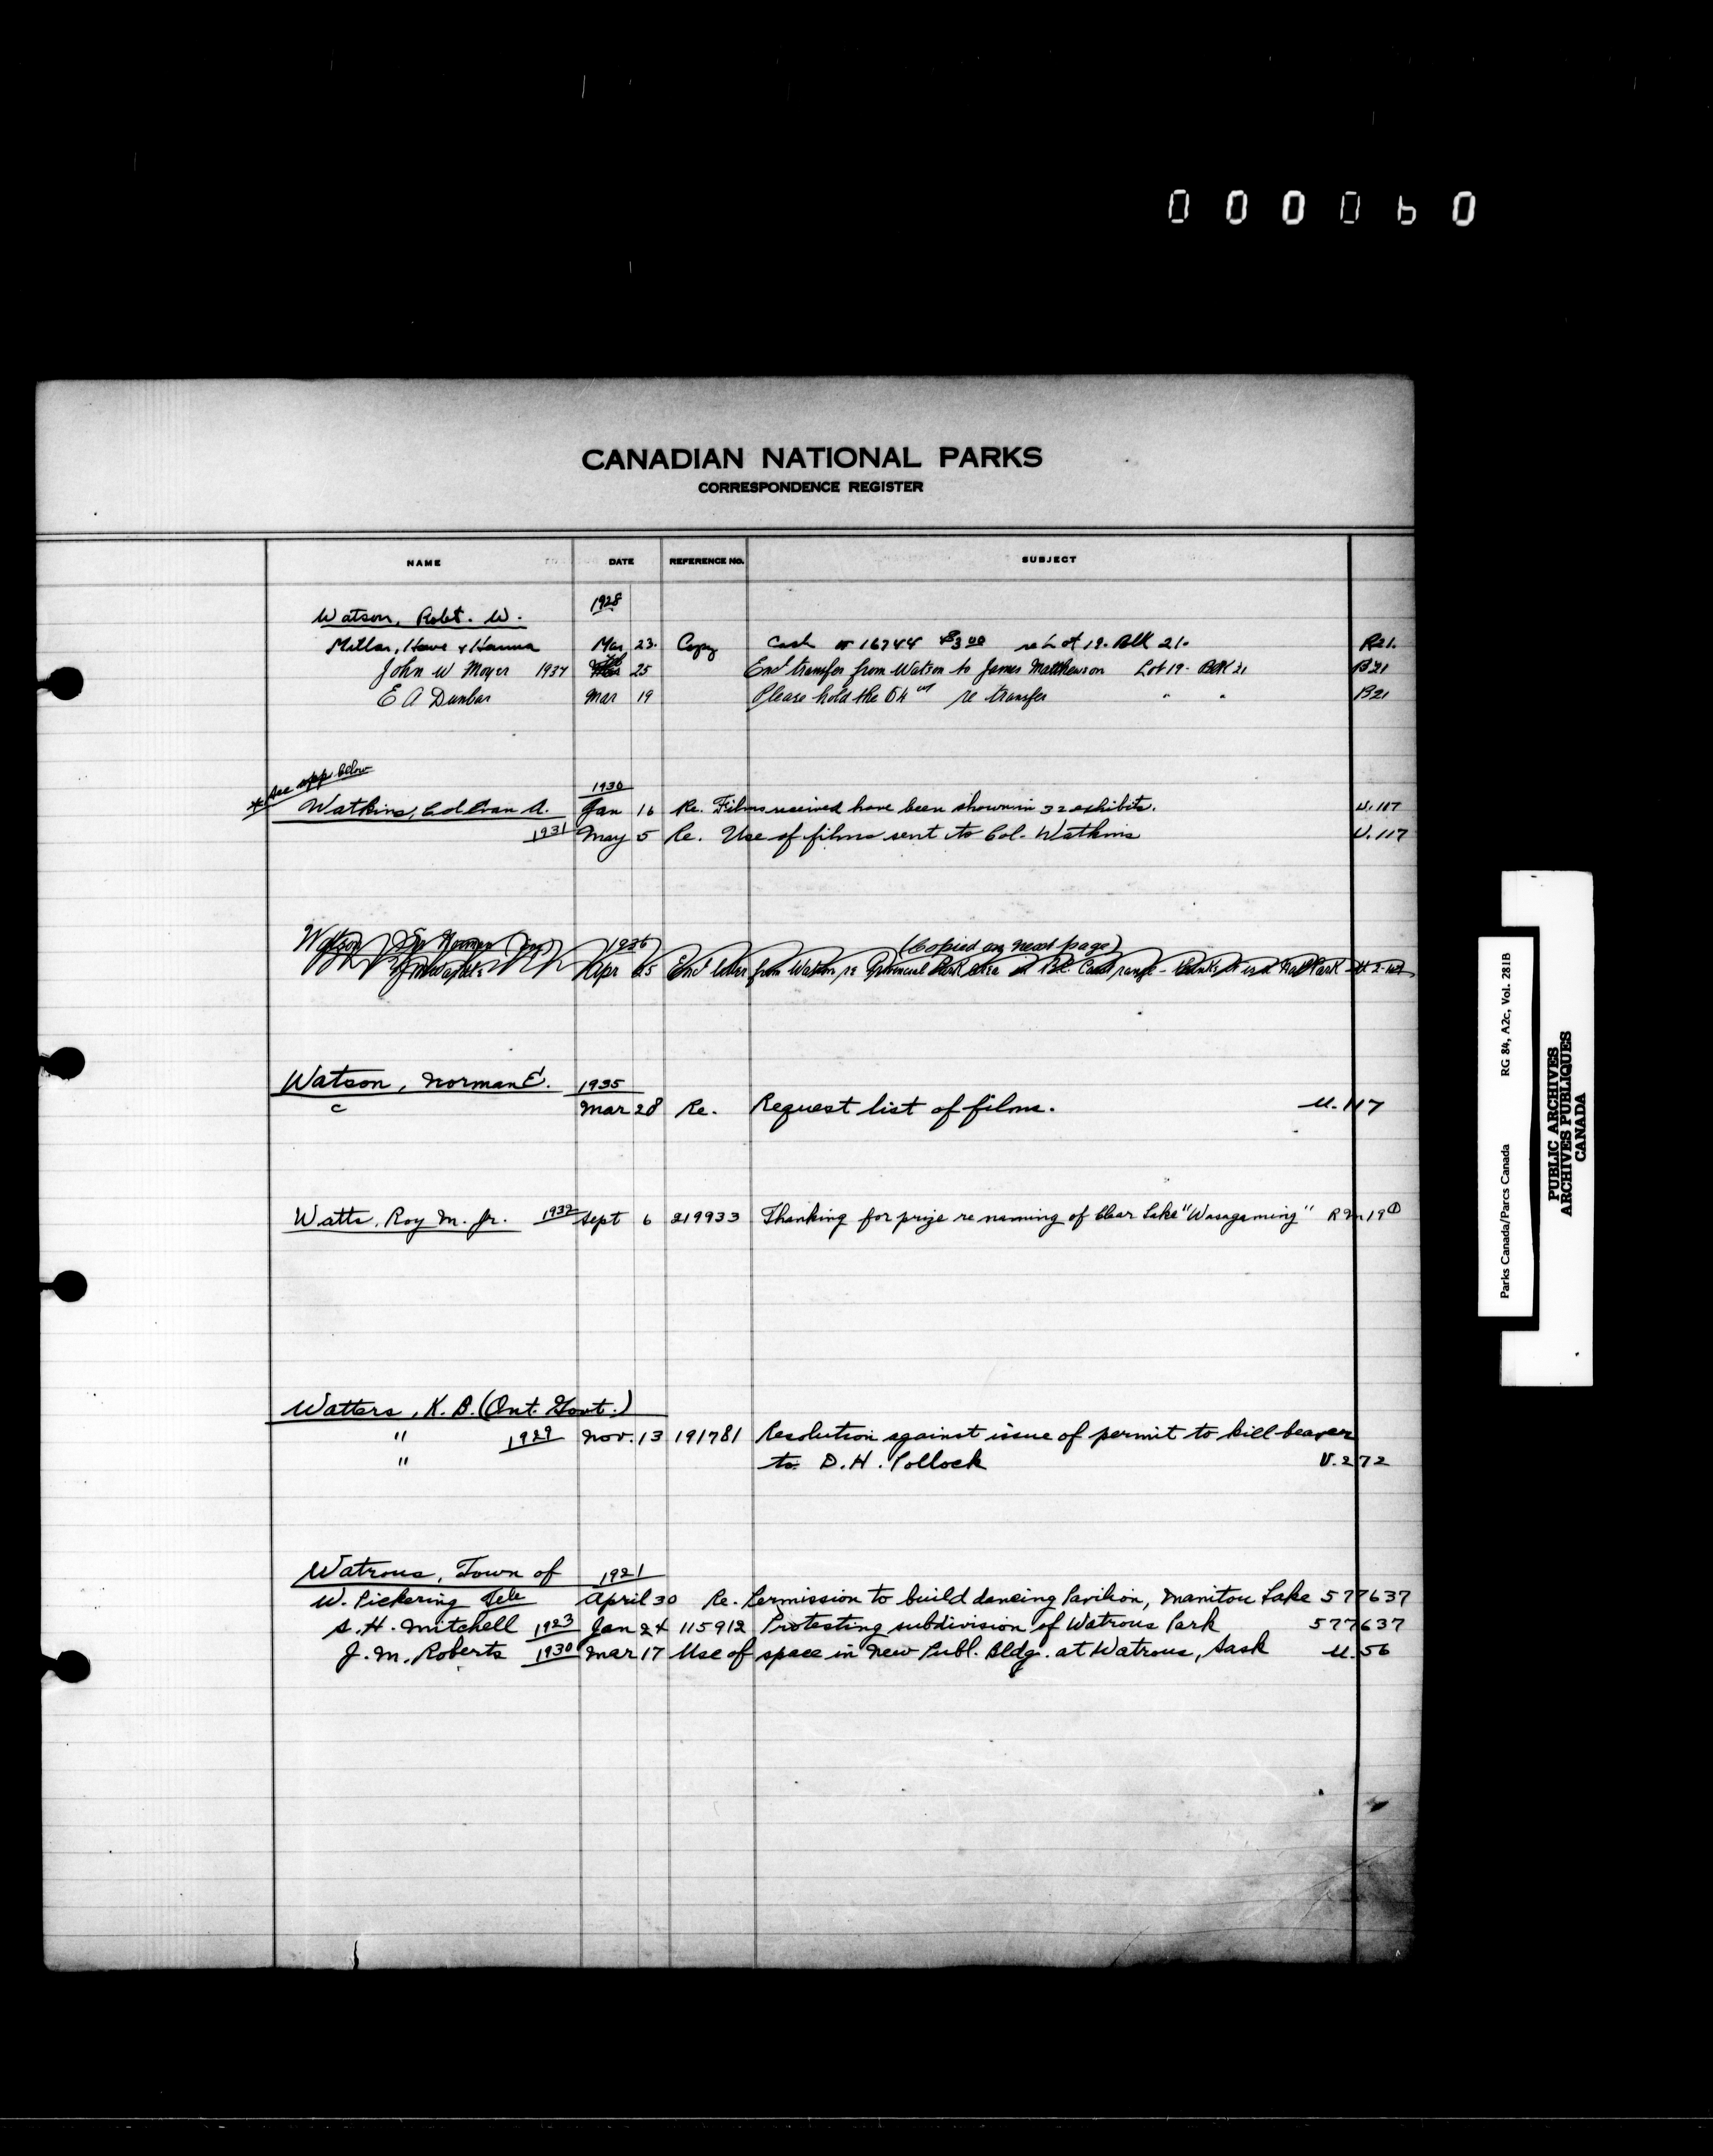 000060
CANADIAN NATIONAL PARKS
CORRESPONDENCE REGISTER
NAME DATE REFERENCE NO. SUBJECT
1928
Watson, Robt. W.
Millar, Howe & Hanna Mar 23. Copy Cash 16744 $3 00 re Lot 19. Blk 21. R21.
John W Moyer 1934 Feb 25 Encl transfer from Watson to James Matthewson Lot 19 - Blk 21 B21
E A Dunbar Mar 19 Please hold the re transfer " " B21
* See opp below
1930
Watkins, Col Evan A. Jan 16 Re. Films received have been shown in 32 exhibits. U.117
1931 May 5 Re. Use of films sent to Col. Watkins U.117
Watson 1936 (Copied on next page)
Apr 25 Encl letter from Watson re Provincial Park area in B.C. Coast range - thinks it is a Nat Park U.2.
Watson, Norman E. 1935
c Mar 28 Re. Request list of films. U.117
Watts, Roy M. Jr. 1932 Sept 6 219933 Thanking for prize re naming of Clear Lake "Wasagaming" R M 19 ①
Watters, K. B. (Ont. Govt.)
" 1929 Nov. 13 191781 Resolution against issue of permit to kill beaver
" to D.H. Pollock U.272
Watrous, Town of 1921
W. Pickering Tele April 30 Re. Permission to build dancing Pavilion, Manitou Lake 577637
S.H. Mitchell 1923 Jan 24 115912 Protesting subdivision of Watrous Park 577637
J.M. Roberts 1930 Mar 17 Use of space in new Publ. Bldg. at Watrous, Sask U.56
Parks Canada/Parcs Canada RG 84, A2c, Vol. 281B
PUBLIC ARCHIVES
ARCHIVES PUBLIQUES
CANADA